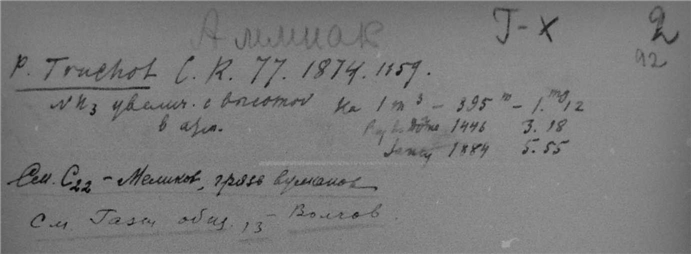 Аммиак Г-X 2
92
P. Truchot C. R. 77. 1874. 1159.
NH3 увелич. с высотой На 1 m³ – 395 m – 1. mg 12
в атм. Puy de Dôme 1446 3. 18
Sancy 1884 5. 55
См. C22 – Меликов, грязь вулканов
См Газы общ. 13 – Волгов.